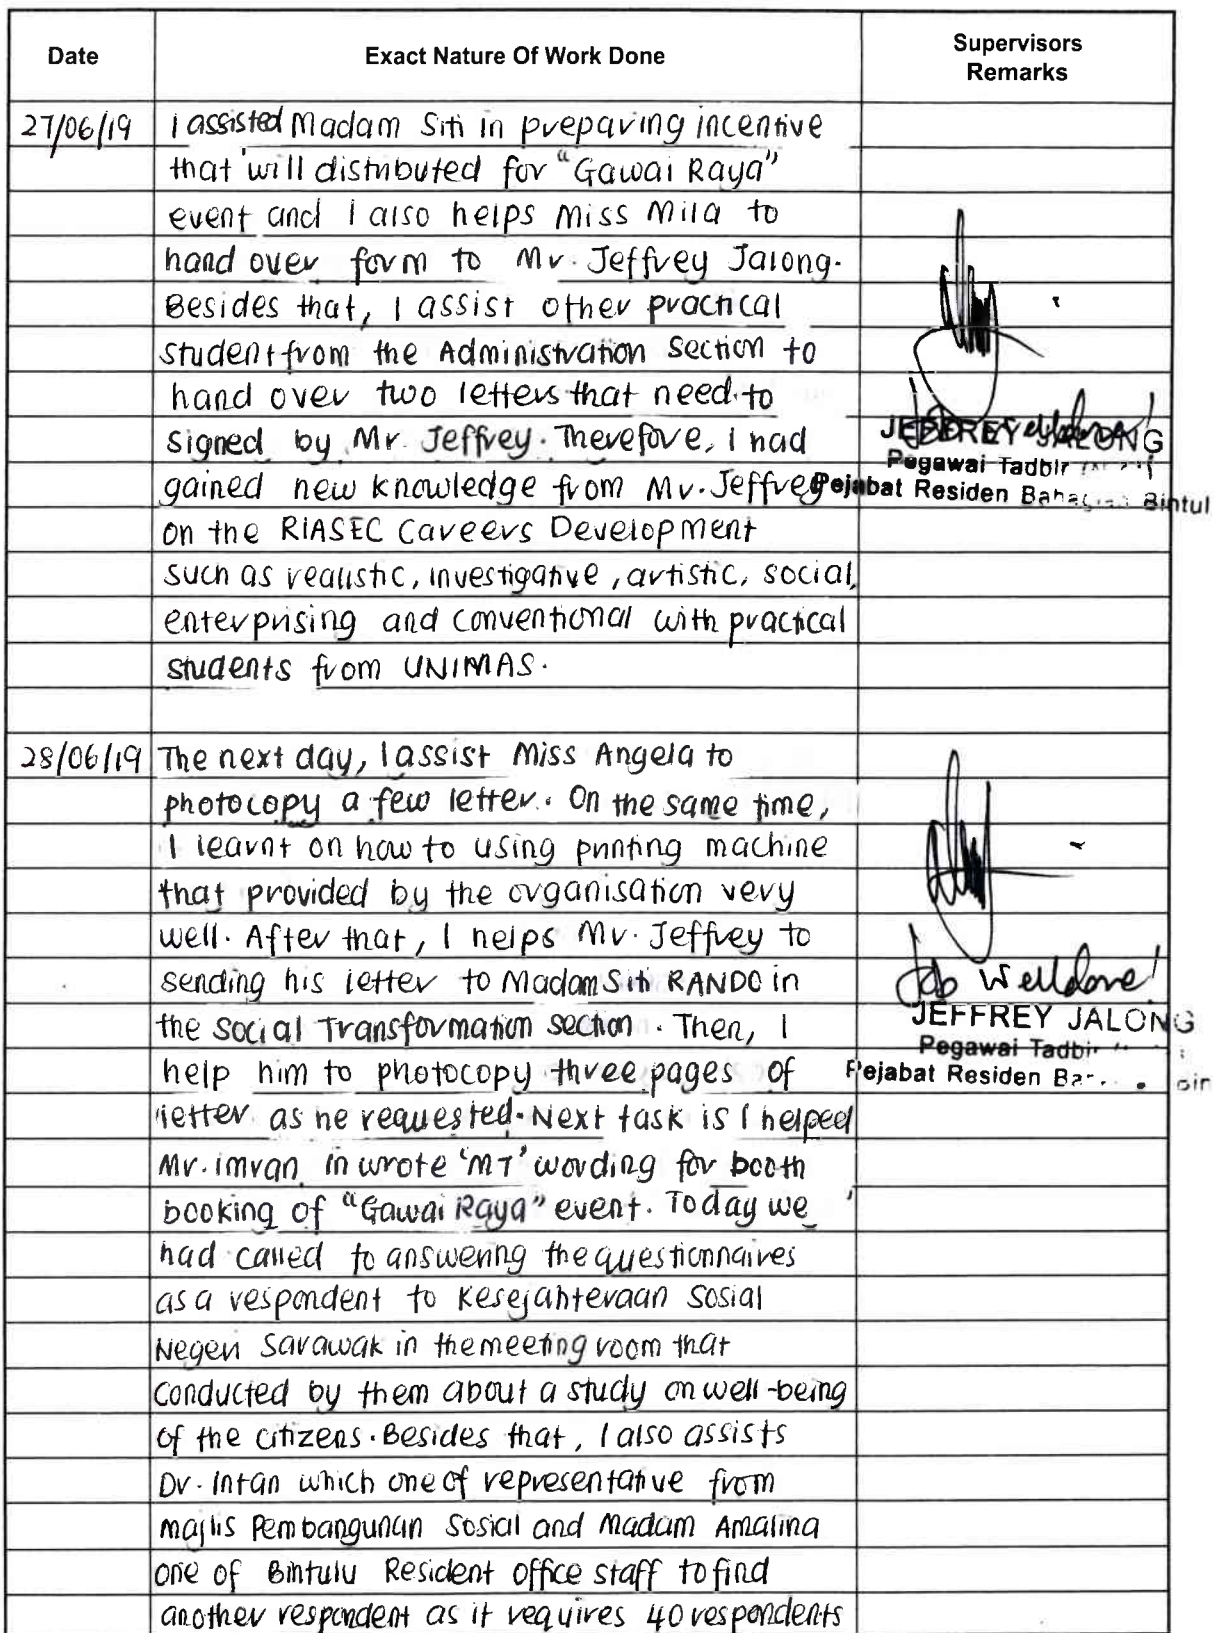 Date
Exact Nature Of Work Done
Supervisors
Remarks
27/06/19
I assisted Madam Siti in preparing incentive
that will distributed for "Gawai Raya"
event and I also helps Miss Mila to
hand over form to Mr. Jeffrey Jalong.
Besides that, I assist other practical
student from the Administration Section to
hand over two letters that need to
signed by Mr. Jeffrey. Therefore, I had
gained new knowledge from Mr. Jeffrey
on the RIASEC Careers Development
such as realistic, investigative, artistic, social,
enterprising and conventional with practical
students from UNIMAS.
JEFFREY JALONG
Pegawai Tadbir
Pejabat Residen Bahagian Bintul
28/06/19
The next day, I assist Miss Angela to
photocopy a few letter. On the same time,
I learnt on how to using printing machine
that provided by the organisation very
well. After that, I helps Mr. Jeffrey to
sending his letter to Madam Siti RANDO in
the Social Transformation section. Then, I
help him to photocopy three pages of
letter as he requested. Next task is I helped
Mr. imran in wrote 'MT' wording for booth
booking of "Gawai Raya" event. Today we
had called to answering the questionnaires
as a respondent to Kesejahteraan Sosial
Negeri Sarawak in the meeting room that
conducted by them about a study on well-being
of the citizens. Besides that, I also assists
Dr. Intan which one of representative from
majlis Pembangunan Sosial and Madam Amalina
one of Bintulu Resident office staff to find
another respondent as it requires 40 respondents
Job Welldone!
JEFFREY JALONG
Pegawai Tadbir
Pejabat Residen